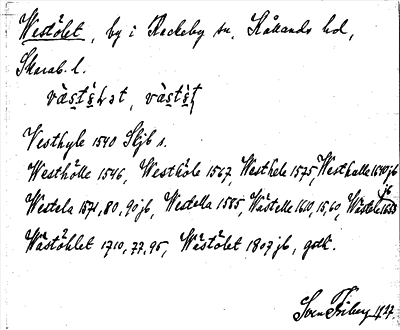 Westölet, by i Rackeby sn, Kållands hd,
Skarab. l.
Vesthyle 1540 Skjb s.
Westhölle 1546, Westhöle 1567, Westhele 1575, Westhalle 1640 jb
Westela 1571, 80, 90 jb, Westella 1585, Wästelle 1610, 15, 60, Wästele 1653 jb
Wästöhlet 1710, 77, 95, Wästölet 1807 jb, godk.
Sven Friberg 1927.